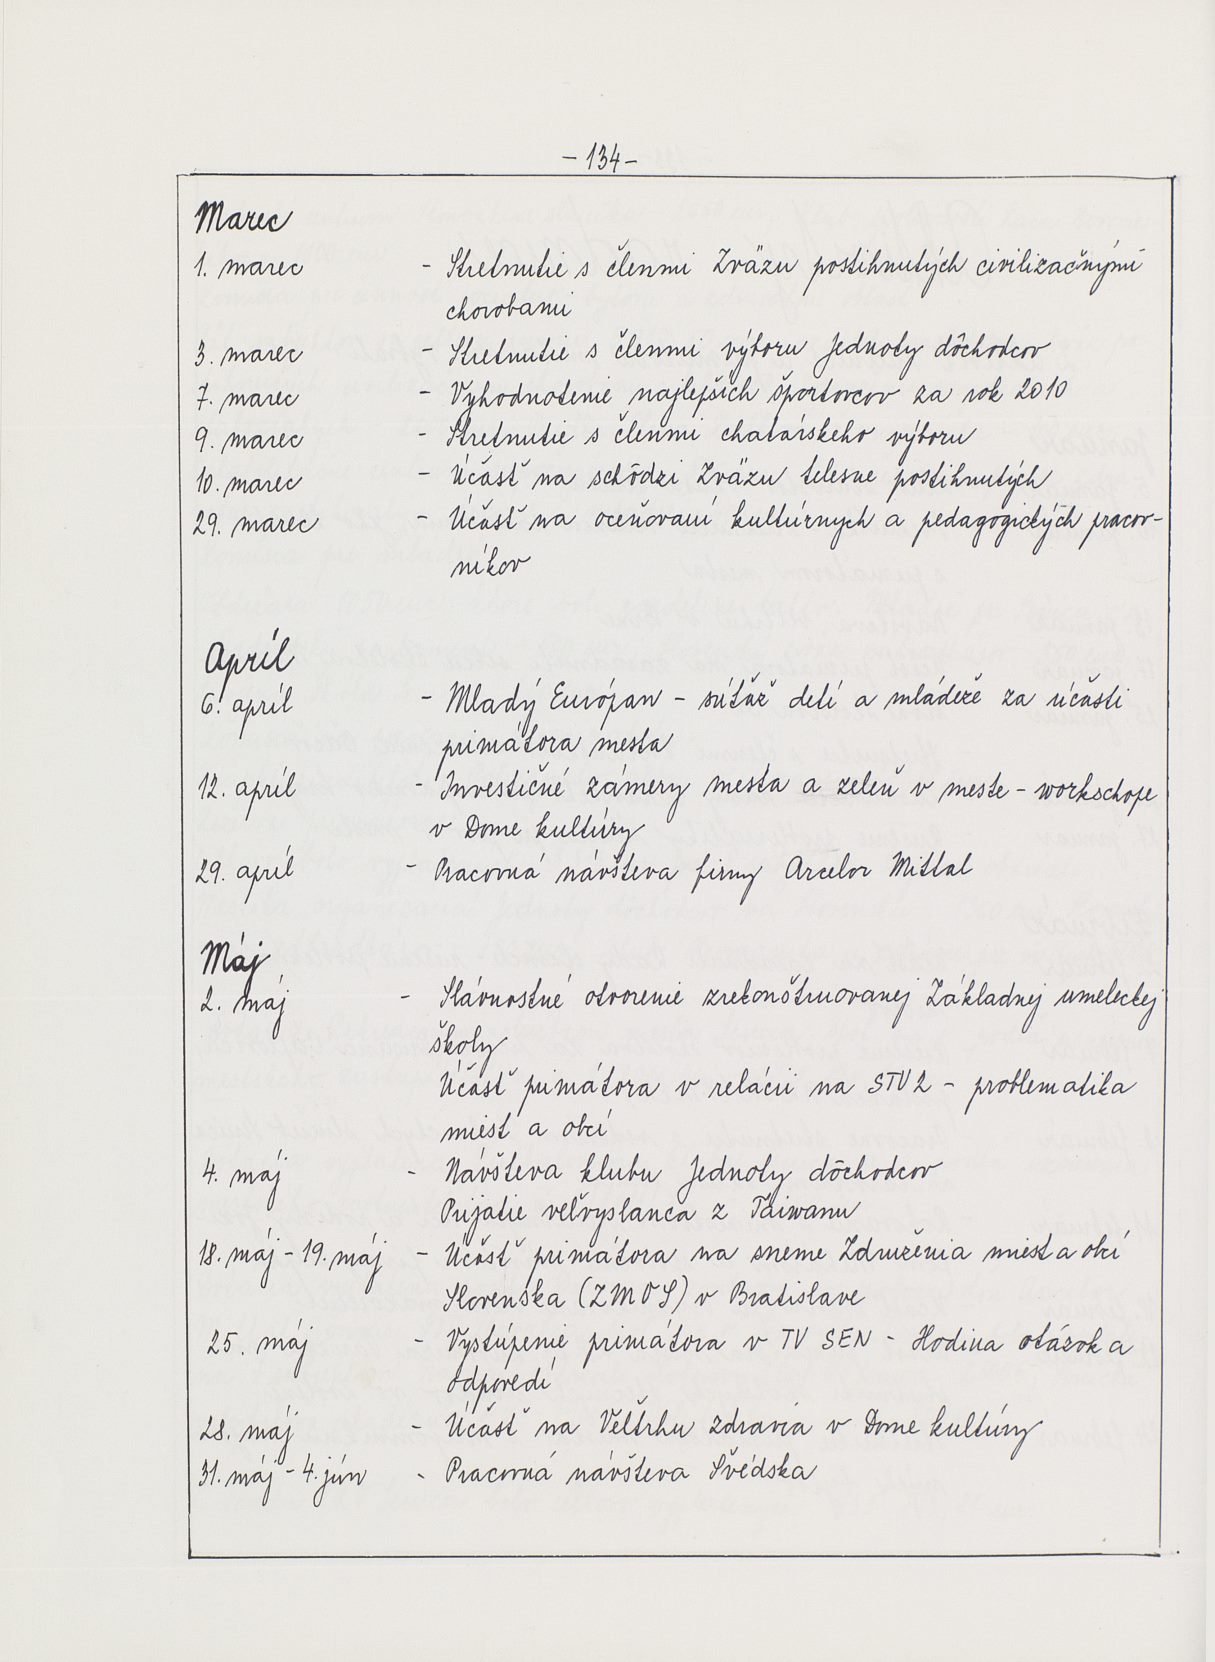 - 134 -
Marec
1. marec - Stretnutie s členmi Zväzu postihnutých civilizačnými
chorobami
3. marec - Stretnutie s členmi výboru Jednoty dôchodcov
7. marec - Vyhodnotenie najlepších športovcov za rok 2010
9. marec - Stretnutie s členmi chatárskeho výboru
10. marec - Účasť na schôdzi Zväzu telesne postihnutých
29. marec - Účasť na oceňovaní kultúrnych a pedagogických pracov-
níkov
Apríl
6. apríl - Mladý Európan - súťaž detí a mládeže za účasti
primátora mesta
12. apríl - Investičné zámery mesta a zeleň v meste - workschope
v Dome kultúry
29. apríl - Pracovná návšteva firmy Arcelor Mittal
Máj
2. máj - Slávnostné otvorenie zrekonštruovanej Základnej umeleckej
školy
Účasť primátora v relácii na STV2 - problematika
miest a obcí
4. máj - Návšteva klubu Jednoty dôchodcov
Prijatie veľvyslanca z Taiwanu
18. máj - 19. máj - Účasť primátora na sneme Združenia miest a obcí
Slovenska (ZMOS) v Bratislave
25. máj - Vystúpenie primátora v TV SEN - Hodina otázok a
odpovedí
28. máj - Účasť na Veľtrhu zdravia v Dome kultúry
31. máj - 4. jún - Pracovná návšteva Švédska